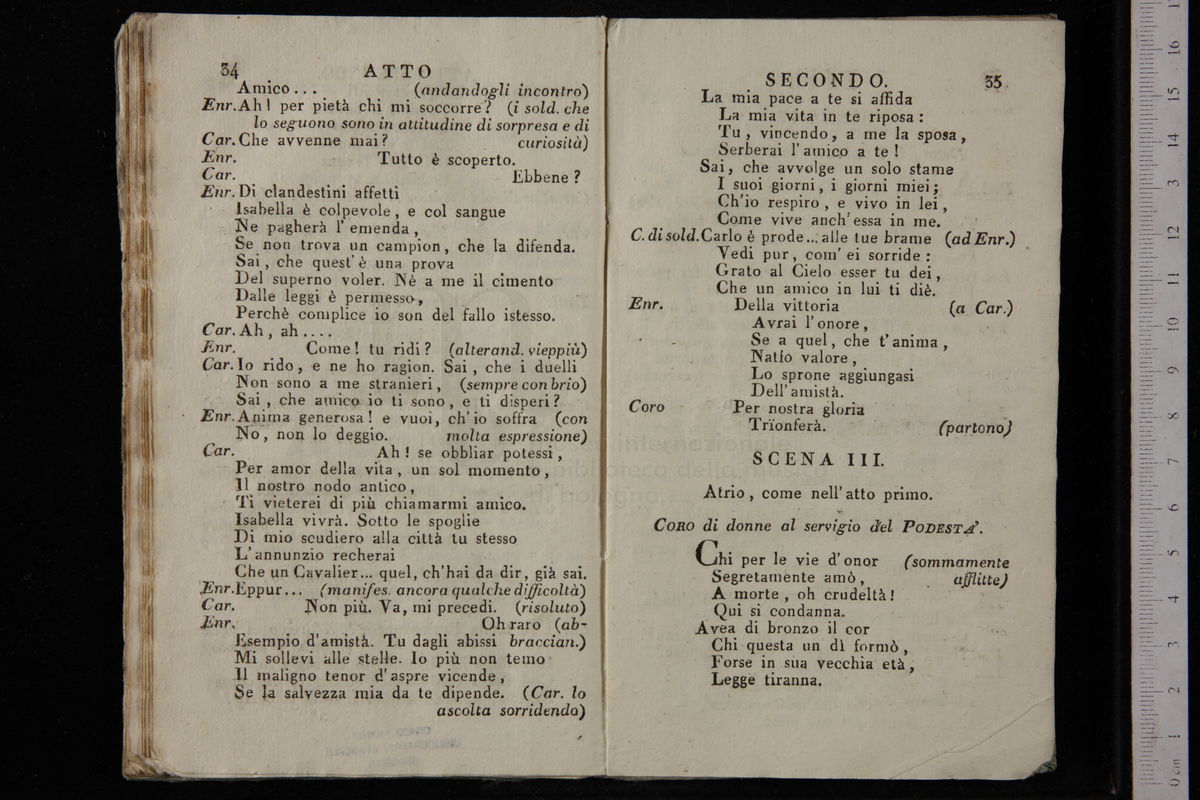 34 ATTO
Amico... (andandogli incontro)
Enr. Ah! per pietà chi mi soccorre? (i sold. che
lo seguono sono in attitudine di sorpresa e di
Car. Che avvenne mai? curiosità)
Enr. Tutto è scoperto.
Car. Ebbene?
Enr. Di clandestini affetti
Isabella è colpevole, e col sangue
Ne pagherà l'emenda,
Se non trova un campion, che la difenda.
Sai, che quest'è una prova
Del superno voler. Nè a me il cimento
Dalle leggi è permesso,
Perchè complice io son del fallo istesso.
Car. Ah, ah....
Enr. Come! tu ridi? (alterand. vieppiù)
Car. Io rido, e ne ho ragion. Sai, che i duelli
Non sono a me stranieri, (sempre con brio)
Sai, che amico io ti sono, e ti disperi?
Enr. Anima generosa! e vuoi, ch'io soffra (con
No, non lo deggio. molta espressione)
Car. Ah! se obbliar potessi,
Per amor della vita, un sol momento,
Il nostro nodo antico,
Ti vieterei di più chiamarmi amico.
Isabella vivrà. Sotto le spoglie
Di mio scudiero alla città tu stesso
L'annunzio recherai
Che un Cavalier... quel, ch'hai da dir, già sai.
Enr. Eppur... (manifes. ancora qualche difficoltà)
Car. Non più. Va, mi precedi. (risoluto)
Enr. Oh raro (ab-
Esempio d'amistà. Tu dagli abissi braccian.)
Mi sollevi alle stelle. Io più non temo
Il maligno tenor d'aspre vicende,
Se la salvezza mia da te dipende. (Car. lo
ascolta sorridendo)
SECONDO. 35
La mia pace a te si affida
La mia vita in te riposa:
Tu, vincendo, a me la sposa,
Serberai l'amico a te!
Sai, che avvolge un solo stame
I suoi giorni, i giorni miei;
Ch'io respiro, e vivo in lei,
Come vive anch'essa in me.
C. di sold. Carlo è prode... alle tue brame (ad Enr.)
Vedi pur, com'ei sorride:
Grato al Cielo esser tu dei,
Che un amico in lui ti diè.
Enr. Della vittoria (a Car.)
Avrai l'onore,
Se a quel, che t'anima,
Natío valore,
Lo sprone aggiungasi
Dell'amistà.
Coro Per nostra gloria
Trïonferà. (partono)
SCENA III.
Atrio, come nell'atto primo.
CORO di donne al servigio del PODESTA'.
Chi per le vie d'onor (sommamente
Segretamente amò, afflitte)
A morte, oh crudeltà!
Qui si condanna.
Avea di bronzo il cor
Chi questa un dì formò,
Forse in sua vecchia età,
Legge tiranna.
internazionale
biblioteca della musica
di bologna
0 cm 1 2 3 4 5 6 7 8 9 10 11 12 13 14 15 16 17